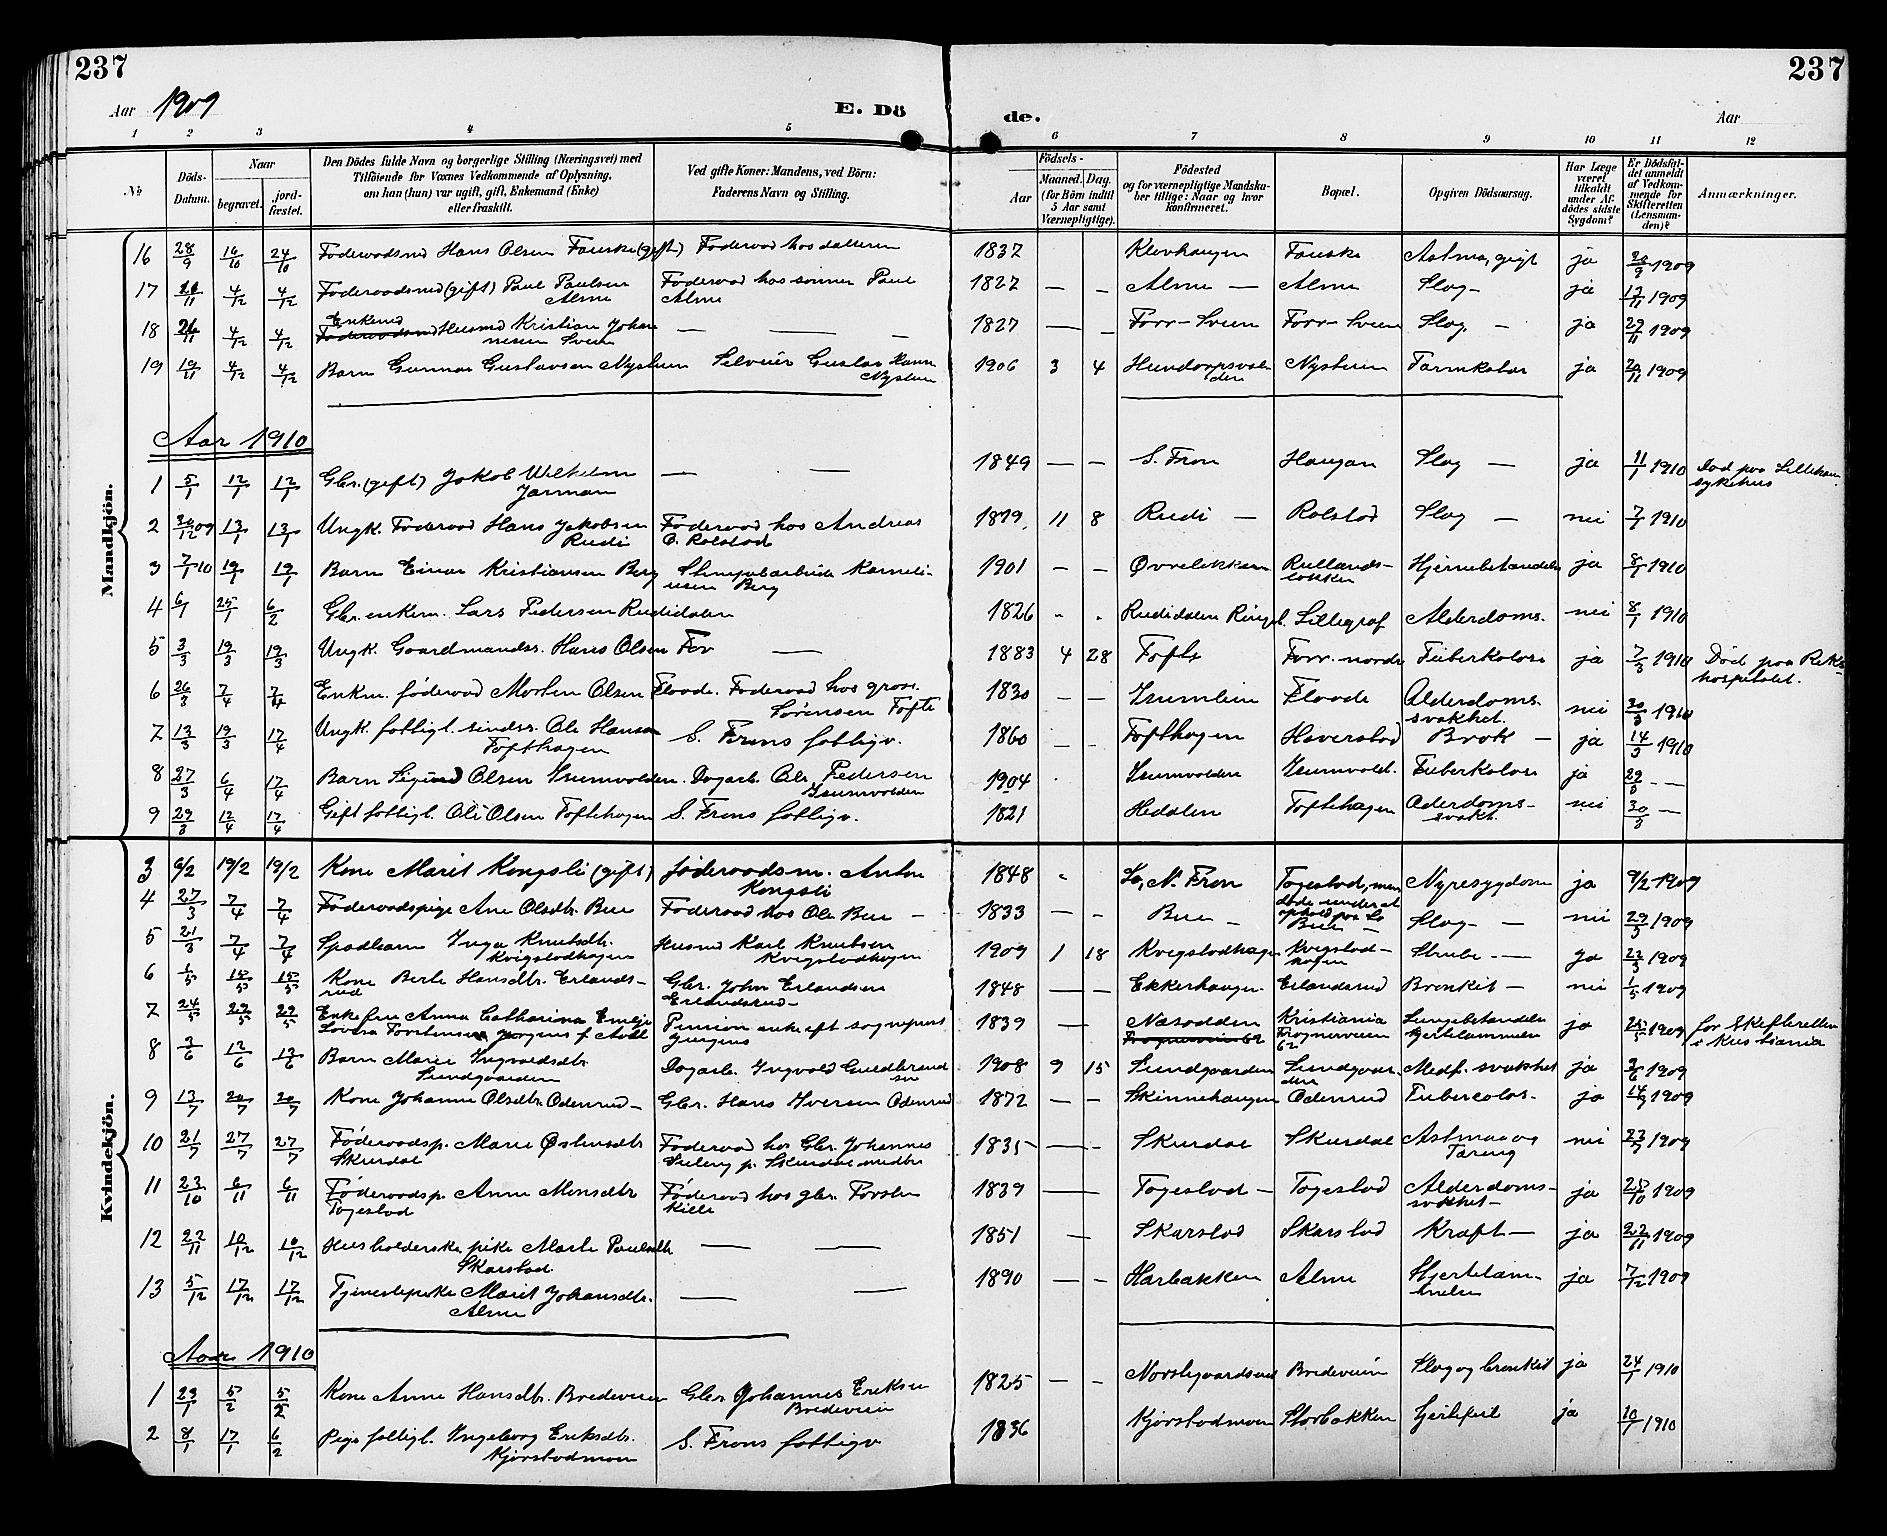 237
237
Aar 1909
E. Dö
de.
Aar
1 2 3 4 5 6 7 8 9 10 11 12
№
Döds-Datum.
Naar
begravet.
jord-fæstet.
Den Dödes fulde Navn og borgerlige Stilling (Næringsvei) med
Tilföiende for Voxnes Vedkommende af Oplysning,
om han (hun) var ugift, gift, Enkemand (Enke)
eller fraskilt.
Ved gifte Koner: Mandens, ved Börn:
Faderens Navn og Stilling.
Födsels-
Aar
Maaned. Dag.
(for Börn indtil
5 Aar samt
Værnepligtige).
Födested
og for værnepligtige Mandska-
ber tillige: Naar og hvor
konfirmeret.
Bopæl.
Opgiven Dödsaarsag.
Har Læge
været
tilkaldt
under Af-
dödes sidste
Sygdom?
Er Dödsfal-
det anmeldt
af Vedkom-
mende for
Skifteretten
(Lensman-
den)?
Anmærkninger.
Mandkjön.
16 28/9 16/10 24/10 Foderaadsmd Hans Olsen Fauske (gift) Foderaad hos datteren 1837 Klevhaugen Fauske Astma, gigt ja 20/9 1909
17 4/12 4/12 Foderaadsmd (gift) Paul Paulsen Alme Foderaad hos sönnen Paul Alme 1827 — - Alme — Alme Slag - ja 1909
18 4/12 4/12 Enkemd Foderaadsmd Husmd Kristian Johannesen Sveen — — — 1827 — - Forr-Sveen Forr-Sveen Slag - ja 29/11 1909
19 19/11 4/12 4/12 Barn Gunnar Gustavsen Nysteen Selveier Gustav Nysteen 1906 3 4 Nysteen ja 20/11 1909
Aar 1910
1 5/1 12/1 12/1 Gbr. (gift) Jakob Wilhelm Jarmann — — 1849 — — S. Fron Haugan Slag — ja 11/1 1910 Död paa Lilleham. sykehus
2 30/12 09 13/1 13/1 Ungk. Foderaad Hans Jakobsen Rudi Foderaad hos Andreas O. Rolstad 11 8 Rudi — Rolstad Slag — nei 7/1 1910
3 7/1 10 19/1 19/1 Barn Einar Kristiansen Berg Berg 1901 - - Øvrelökken Rullands-lökken Hjernebetændelse ja 8/1 1910
4 6/1 25/1 6/2 Gbr. enkem. Lars Pedersen Rudidalen 1826 - - Rudidalen Ringeb. Lillegraf Alderdoms. nei 8/1 1910
5 3/3 19/3 19/3 Ungk. Gaardmandss. Hans Olsen For — 1883 4 28 Tofte Forr. nordre Tuberkolose ja 7/3 1910 Död paa Riks-hospitalet.
6 26/3 7/4 7/4 Enkm. föderaad Morten Olsen Floode. Foderaad hos Sörensen Tofte 1830 - - Isumlien Floode Alderdoms-svakhet. nei 30/3 1910
7 13/3 19/3 17/4 Ungk. fattigl. sindss. Ole Hansen Tofthagen S. Frons fattigv. 1860 - - Tofthagen Haverstad Brok — ja 14/3 1910
8 27/3 6/4 17/4 Barn Sigurd Olsen Isumvolden. Dagarb. Ole Pedersen Isumvolden 1904 Isumvolden Isumvold. Tuberkolose ja 29/3 — —
9 29/3 12/4 17/4 Gift fattigl. Ole Olsen Toftehagen S. Frons fattigv. 1821 Hedalen Toftehagen Alderdoms-svakh. nei 30/3 —
Kvindekjön.
3 6/2 19/2 19/2 Kone Marit Kongsli (gift) föderaadsm. Anton Kongsli 1848 - Lo, N. Fron Togestad, men döde under et ophold paa Lo Nyresygdom ja 9/2 1909
4 27/3 7/4 7/4 Foderaadspige Ane Olsdtr. Bue Foderaad hos Ole Bue - 1833 — - Bue - Bue — Slag - — nei 29/3 1909
5 21/3 7/4 7/4 Spædbarn Inga Knutsdtr. Kvigstadhagen Husmd Karl Knutsen Kvigstadhagen 1909 1 18 Kvigstadhagen Kvigstad-hagen Strube - — ja 22/3 1909
6 1/5 15/5 15/5 Kone Berte Hansdtr. Erlandsrud Gbr. John Erlandsen Erlandsrud - 1848 — — Ekkerhaugen Erlandsrud Bronkit — nei 1/5 1909
7 24/5 29/5 29/5 Enkefrue Anna Catharina Emelje Lovisa Torstensen Jørgens f. Pension enke eft sogneprest Jurgens 1839 — — Næsodden Kristiania Frognerveien 62 Lungebetændelse Hjertelammelse ja 25/5 1909 for Skifteretten i Kristiania
8 3/6 12/6 12/6 Barn Marie Ingvaldsdtr. Sundgaarden Dagarb. Ingvald Guldbrandsen 1908 9 15 Sundgaarden Sundgaarden Medf. svakhet ja 3/6 1909
9 13/7 20/7 20/7 Kone Johanne Olsdtr. Odenrud - Gbr. Hans Iversen Odenrud 1872 — — Skinnehaugen Odenrud Tubercolos - ja 14/7 1909
10 21/7 27/7 27/7 Föderaadsp. Marie Østensdtr Skurdal Foderaad hos Gbr. Johannes p. Skurdal 1835 — - Skurdal Skurdal Astma og Tæring nei 23/7 1909
11 23/10 6/11 6/11 Föderaadsp. Anne Monsdtr Togestad Föderaad hos gbr. Torsten Kille 1839 — — Togestad — Togestad Alderdoms-svakhet - ja 25/10 1909
12 22/11 10/12 10/12 Husholderske pike Marte Paulsdtr Skarstad. — — 1851 — Skarstad Skarstad Kræft — ja 22/11 1909
13 5/12 17/12 17/12 Tjenestepike Marit Johansdtr. Alme — — 1890 — - Harbakken Alme Hjertelam-melse ja 7/12 1909
Aar 1910
1 23/1 5/2 5/2 Kone Anne Hansdtr. Bredeveien Gbr. Johannes Eriksen Bredeveien 1825 — - Bredeveien Slag og bronkit ja 24/1 1910
2 8/1 17/1 6/2 Pige fattigl. Ingeborg Eriksdtr. Kjorstadmoen S. Frons fattigv 1836 Kjorstadmoen Storbakken Hjertefeil ja 10/1 1910